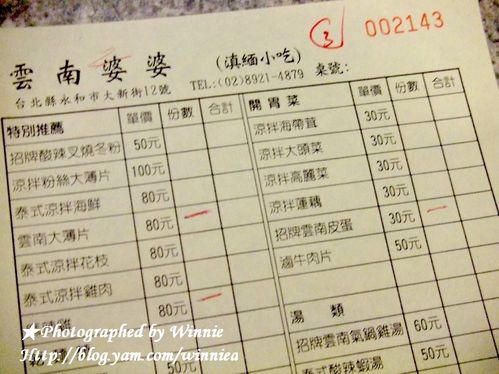 3
002143
雲南婆婆 (滇緬小吃)
台北縣永和市大新街12號 TEL:(02)8921-4879 桌號:
特別推薦 單價 份數 合計
招牌酸辣叉燒冬粉 50元
涼拌粉絲大薄片 100元
泰式涼拌海鮮 80元
雲南大薄片 80元
泰式涼拌花枝 80元
泰式涼拌雞肉 80元
80元
50元
開胃菜 單價 份數 合計
涼拌海帶茸 30元
涼拌大頭菜 30元
涼拌高麗菜 30元
涼拌蓮藕 30元
招牌雲南皮蛋 30元
滷牛肉片 50元
湯類
招牌雲南氣鍋雞湯 60元
泰式酸辣蝦湯 50元
★Photographed by Winnie
Http://blog.yam.com/winniea